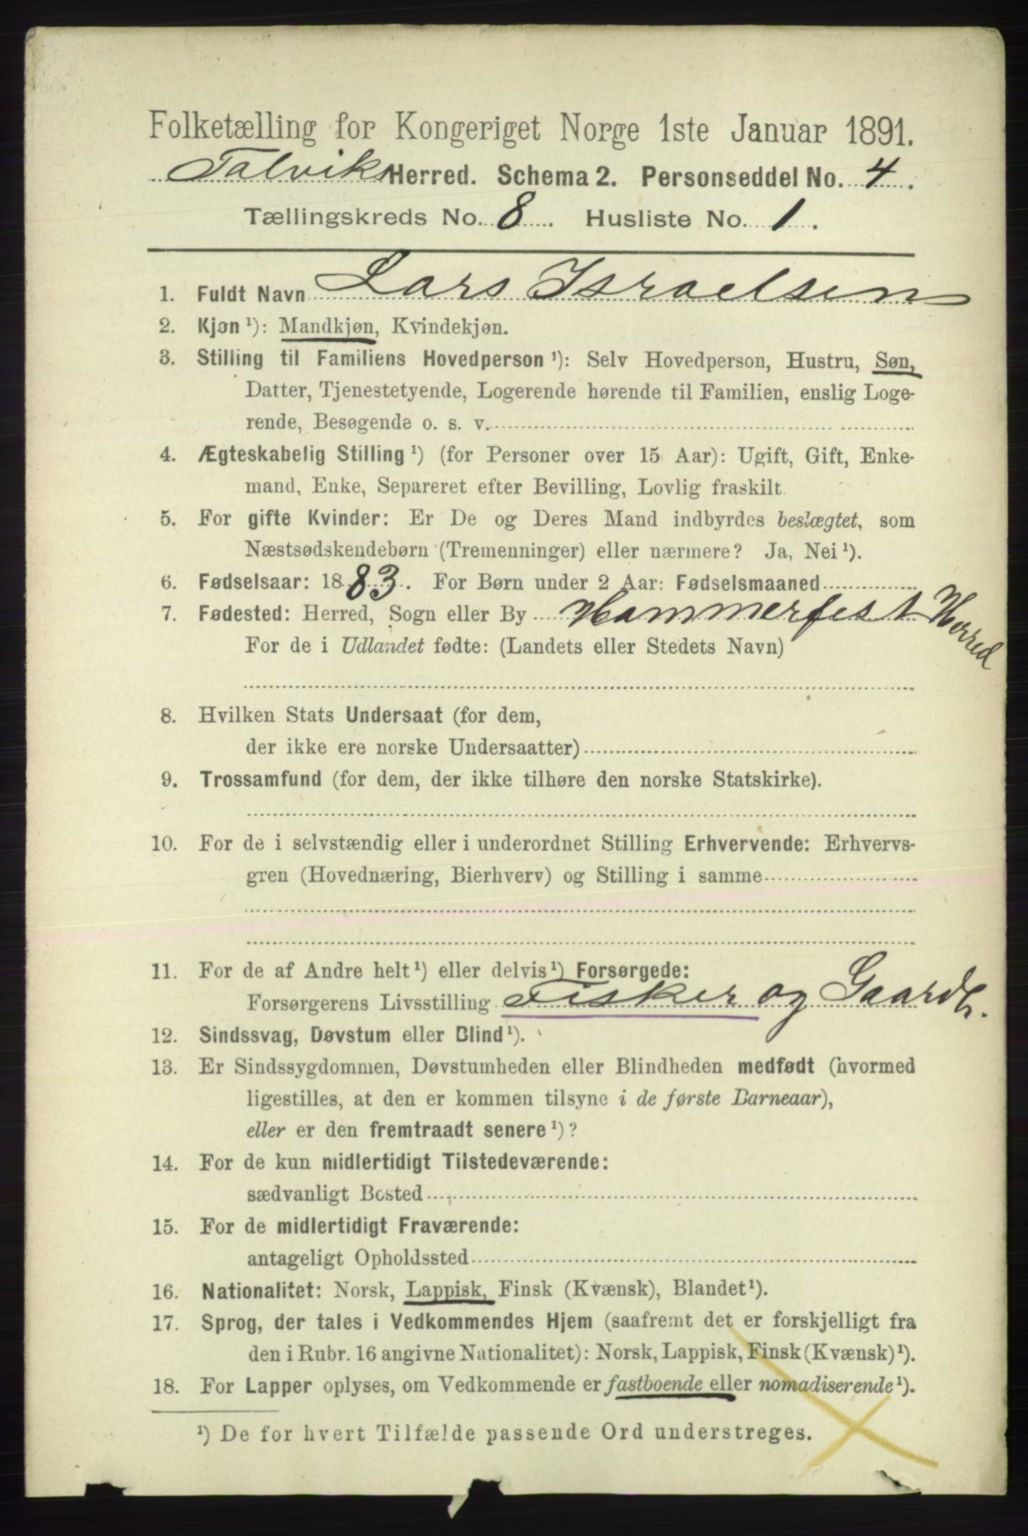 Folketælling for Kongeriget Norge 1ste Januar 1891.
Talviks Herred. Schema 2. Personseddel No. 4.
Tællingskreds No. 8. Husliste No. 1.
1. Fuldt Navn Lars Israelsen
2. Kjøn ¹): Mandkjøn, Kvindekjøn.
3. Stilling til Familiens Hovedperson ¹): Selv Hovedperson, Hustru, Søn,
Datter, Tjenestetyende, Logerende hørende til Familien, enslig Loge-
rende, Besøgende o. s. v.
4. Ægteskabelig Stilling ¹) (for Personer over 15 Aar): Ugift, Gift, Enke-
mand, Enke, Separeret efter Bevilling, Lovlig fraskilt.
5. For gifte Kvinder: Er De og Deres Mand indbyrdes beslægtet, som
Næstsødskendebørn (Tremenninger) eller nærmere? Ja, Nei ¹).
6. Fødselsaar: 1883. For Børn under 2 Aar: Fødselsmaaned
7. Fødested: Herred, Sogn eller By Hammerfest Herred
For de i Udlandet fødte: (Landets eller Stedets Navn)
8. Hvilken Stats Undersaat (for dem,
der ikke ere norske Undersaatter)
9. Trossamfund (for dem, der ikke tilhøre den norske Statskirke).
10. For de i selvstændig eller i underordnet Stilling Erhvervende: Erhvervs-
gren (Hovednæring, Bierhverv) og Stilling i samme
11. For de af Andre helt ¹) eller delvis ¹) Forsørgede:
Forsørgerens Livsstilling Fisker og Gaardb.
12. Sindssvag, Døvstum eller Blind ¹).
13. Er Sindssygdommen, Døvstumheden eller Blindheden medfødt (hvormed
ligestilles, at den er kommen tilsyne i de første Barneaar),
eller er den fremtraadt senere ¹)?
14. For de kun midlertidigt Tilstedeværende:
sædvanligt Bosted
15. For de midlertidigt Fraværende:
antageligt Opholdssted
16. Nationalitet: Norsk, Lappisk, Finsk (Kvænsk), Blandet ¹).
17. Sprog, der tales i Vedkommendes Hjem (saafremt det er forskjelligt fra
den i Rubr. 16 angivne Nationalitet): Norsk, Lappisk, Finsk (Kvænsk) ¹).
18. For Lapper oplyses, om Vedkommende er fastboende eller nomadiserende ¹).
¹) De for hvert Tilfælde passende Ord understreges.